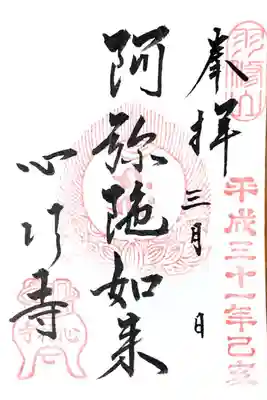 奉拝
平成三十一年己亥
三月 日
阿弥陀如来
心行寺